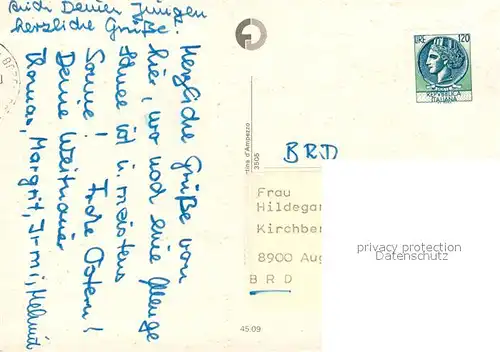 Auch Deinen Jungen
herzliche Grüße.
Herzliche Grüße von
hier, wo noch eine Menge
Schnee ist u. meistens
Sonne! Frohe Ostern!
Deine
Thomas, Margrit, Irmi, Helmut
LIRE 120
REPVBBLICA
ITALIANA
d'Ampezzo
3506
BRD
Frau
Hildegar
Kirchber
8900 Aug
B R D
privacy protection
Datenschutz
45 09